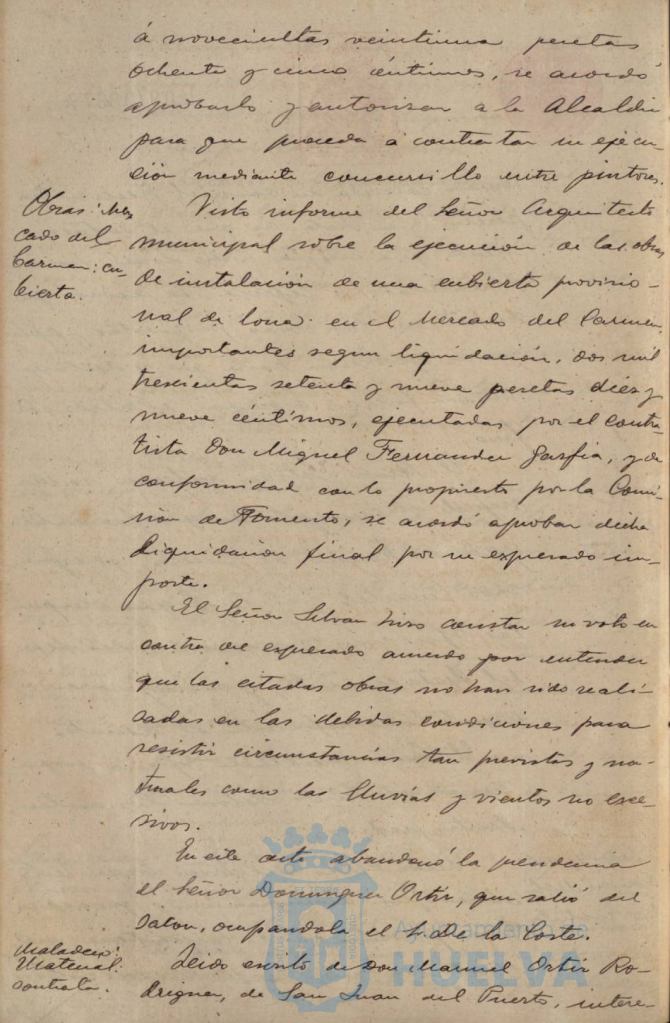 á novecientas veintiuna pesetas
ochenta y cinco céntimos, se acordó
aprobarlo y autorizar a la Alcaldía
para que proceda a contratar su ejecu-
ción mediante concursillo entre pintores.
Obras: Mer-
cado del
Carmen: cu-
bierta.
Visto informe del Señor Arquitecto
municipal sobre la ejecución de las obras
de instalación de una cubierta provisio-
nal de lona en el Mercado del Carmen,
importantes segun liquidación, dos mil
trescientas setenta y nueve pesetas diez y
nueve céntimos, ejecutadas por el contra-
tista Don Miguel Fernandez Garfia, y de
conformidad con lo propuesto por la Comi-
sion de Fomento, se acordó aprobar dicha
liquidación final por su expresado im-
porte.
El Señor Silvan hizo constar su voto en
contra del expresado acuerdo por entender
que las citadas obras no han sido reali-
zadas en las debidas condiciones para
resistir circunstancias tan previstas y na-
turales como las lluvias y vientos no exce-
sivos.
En este acto abandonó la presidencia
el Señor Dominguez Ortiz, que salió del
salon, ocupandola el S. De la Corte.
Matadero:
Material:
contrata.
Leido escrito de Don Manuel Ortiz Ro-
driguez, de San Juan del Puerto, intere-
Ayuntamiento de
HUELVA